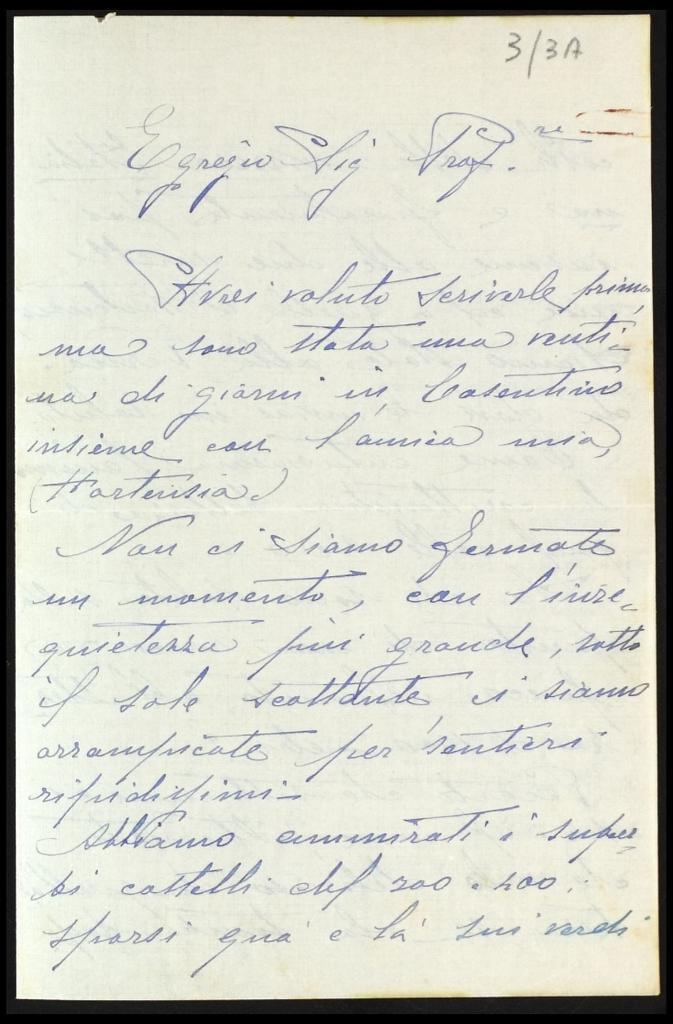 3/3A
Egregio Sig Prof.re
Avrei voluto scriverle prima,
ma sono stata una venti=
na di giorni in Casentino
insieme con l'amica mia,
(Hortensia)
Non ci siamo fermate
un momento, con l'inre=
quietezza piú grande, sotto
il sole scottante ci siamo
arrampicate per sentieri
ripidissimi -
Abbiamo ammirati i super=
bi castelli del 200 :
sparsi qua e lá sui verdi